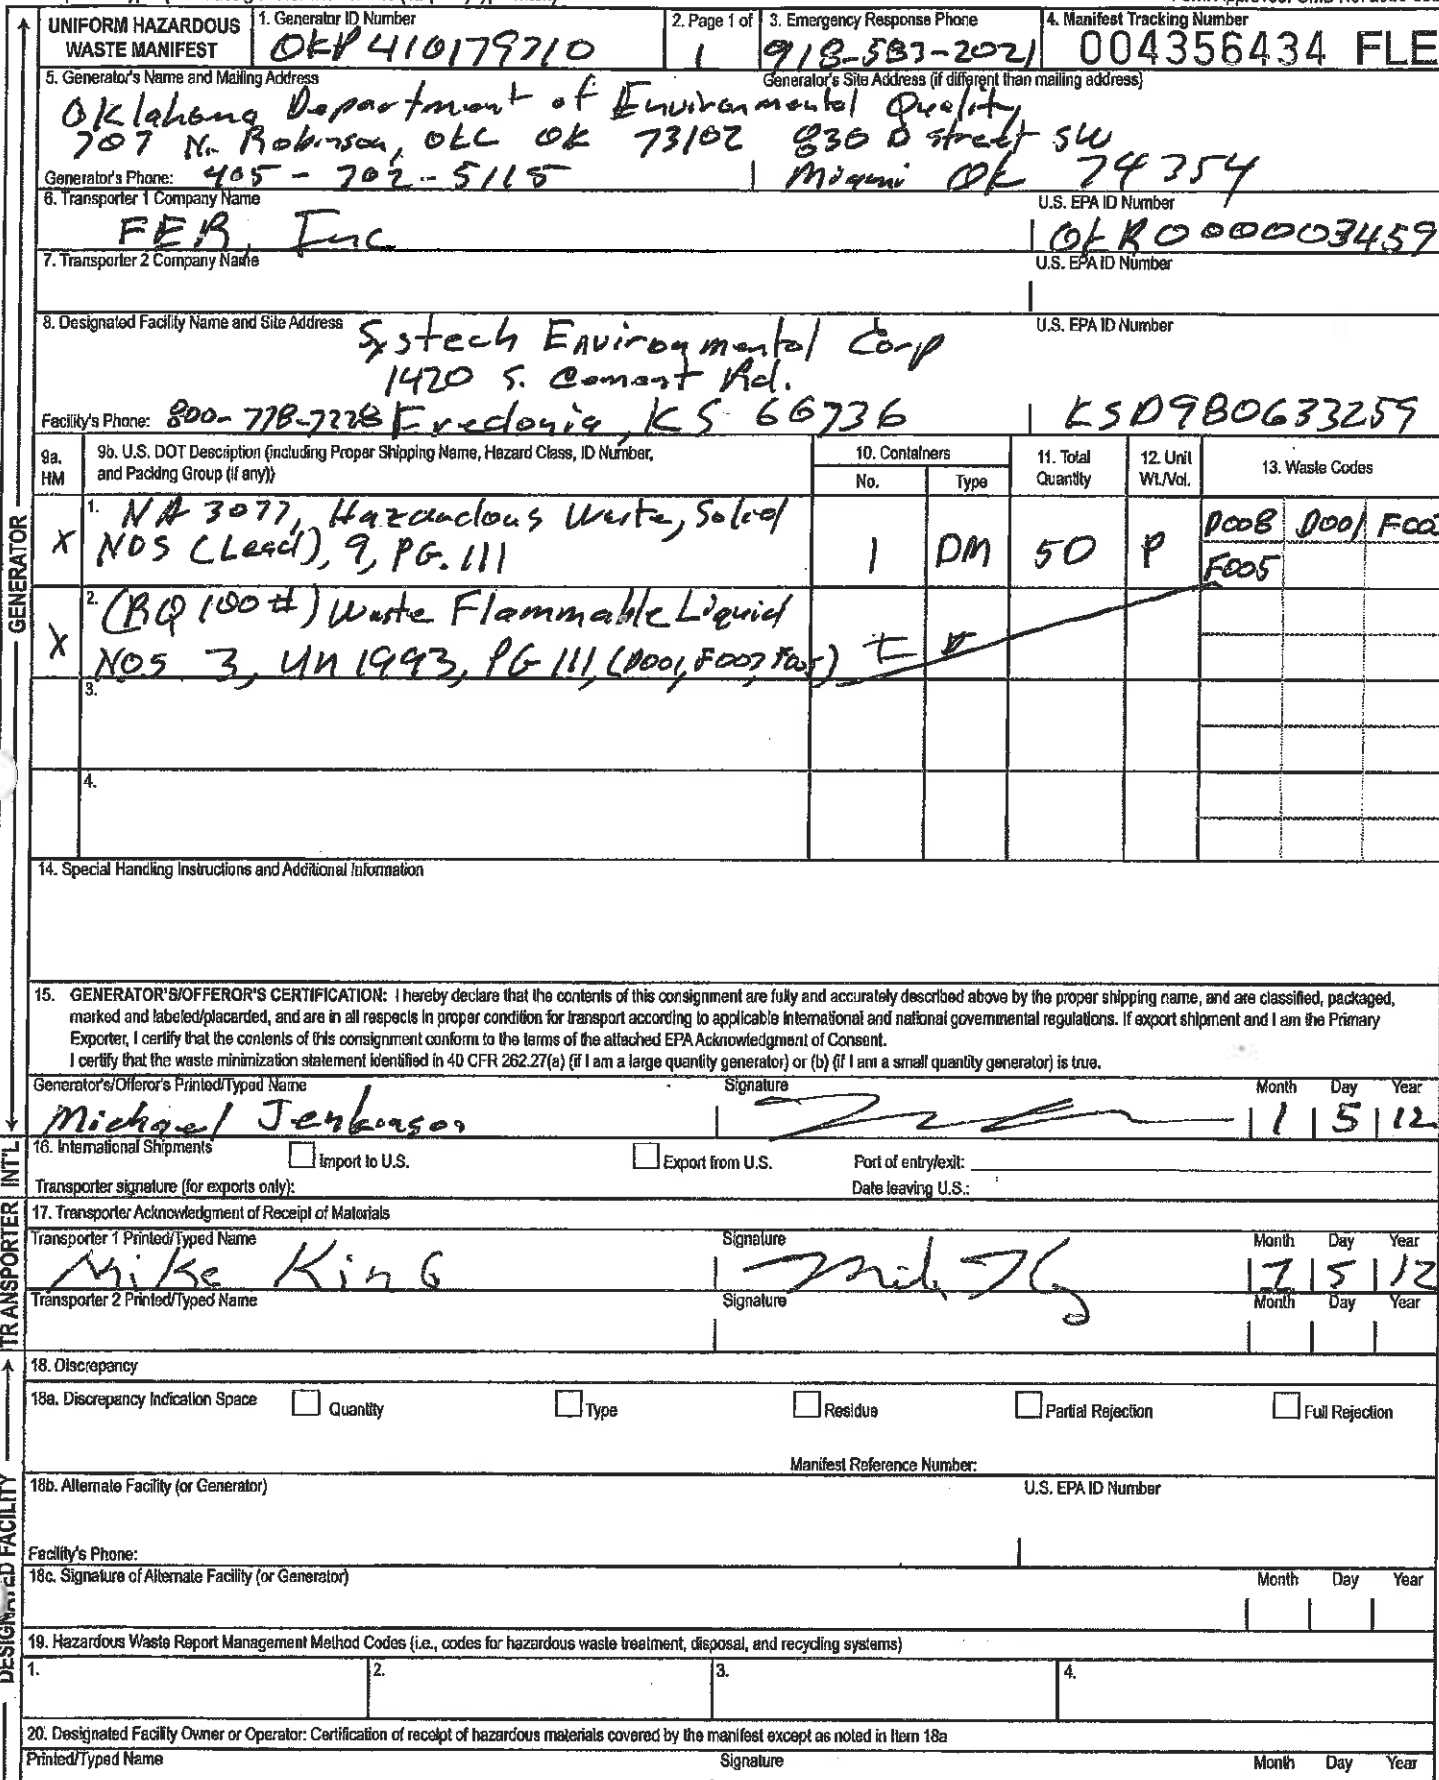 UNIFORM HAZARDOUS WASTE MANIFEST
1. Generator ID Number
OKP410179710
2. Page 1 of
1
3. Emergency Response Phone
918-583-2021
4. Manifest Tracking Number
004356434 FLE
5. Generator's Name and Mailing Address
Generator's Site Address (if different than mailing address)
Oklahoma Department of Environmental Quality
707 N. Robinson, OKC OK 73102 830 D street SW
Generator's Phone: 405-702-5115
Miami OK 74354
6. Transporter 1 Company Name
U.S. EPA ID Number
FER, Inc
OKR0000003459
7. Transporter 2 Company Name
U.S. EPA ID Number
8. Designated Facility Name and Site Address
U.S. EPA ID Number
Systech Environmental Corp
1420 S. Cement Rd.
Facility's Phone: 800-778-7228 Fredonia, KS 66736
KSD980633259
9a. HM
9b. U.S. DOT Description (including Proper Shipping Name, Hazard Class, ID Number, and Packing Group (if any))
10. Containers
No.
Type
11. Total Quantity
12. Unit Wt./Vol.
13. Waste Codes
1. NA 3077, Hazardous Waste, Solid
X NOS (Lead), 9, PG.III 1 DM 50 P D008 D001
F005
2. (RQ 100#) Waste Flammable Liquid
X NOS 3, UN1993, PG III, (D001, F003 F005)
3.
4.
14. Special Handling Instructions and Additional Information
15. GENERATOR'S/OFFEROR'S CERTIFICATION: I hereby declare that the contents of this consignment are fully and accurately described above by the proper shipping name, and are classified, packaged,
marked and labeled/placarded, and are in all respects in proper condition for transport according to applicable international and national governmental regulations. If export shipment and I am the Primary
Exporter, I certify that the contents of this consignment conform to the terms of the attached EPA Acknowledgment of Consent.
I certify that the waste minimization statement identified in 40 CFR 262.27(a) (if I am a large quantity generator) or (b) (if I am a small quantity generator) is true.
Generator's/Offeror's Printed/Typed Name
Signature
Month Day Year
Michael Jenkinson
1 5 12
16. International Shipments
Import to U.S.
Export from U.S.
Port of entry/exit:
Transporter signature (for exports only):
Date leaving U.S.:
17. Transporter Acknowledgment of Receipt of Materials
Transporter 1 Printed/Typed Name
Signature
Month Day Year
Mike King
5 12
Transporter 2 Printed/Typed Name
Signature
Month Day Year
18. Discrepancy
18a. Discrepancy Indication Space
Quantity
Type
Residue
Partial Rejection
Full Rejection
Manifest Reference Number:
18b. Alternate Facility (or Generator)
U.S. EPA ID Number
Facility's Phone:
18c. Signature of Alternate Facility (or Generator)
Month Day Year
19. Hazardous Waste Report Management Method Codes (i.e., codes for hazardous waste treatment, disposal, and recycling systems)
1.
2.
3.
4.
20. Designated Facility Owner or Operator: Certification of receipt of hazardous materials covered by the manifest except as noted in Item 18a
Printed/Typed Name
Signature
Month Day Year
GENERATOR
INT'L
TRANSPORTER
DESIGNATED FACILITY